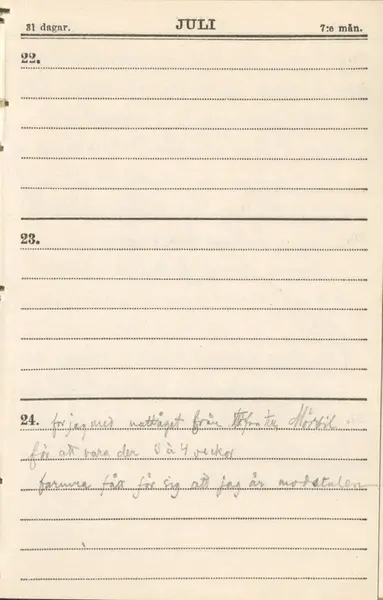 31 dagar. JULI 7:e mån.
22.
23.
24. for jag med nattåget från till Mörsil
för att vara der 3 à 4 veckor
farmra fått för sig att jag är modstulen